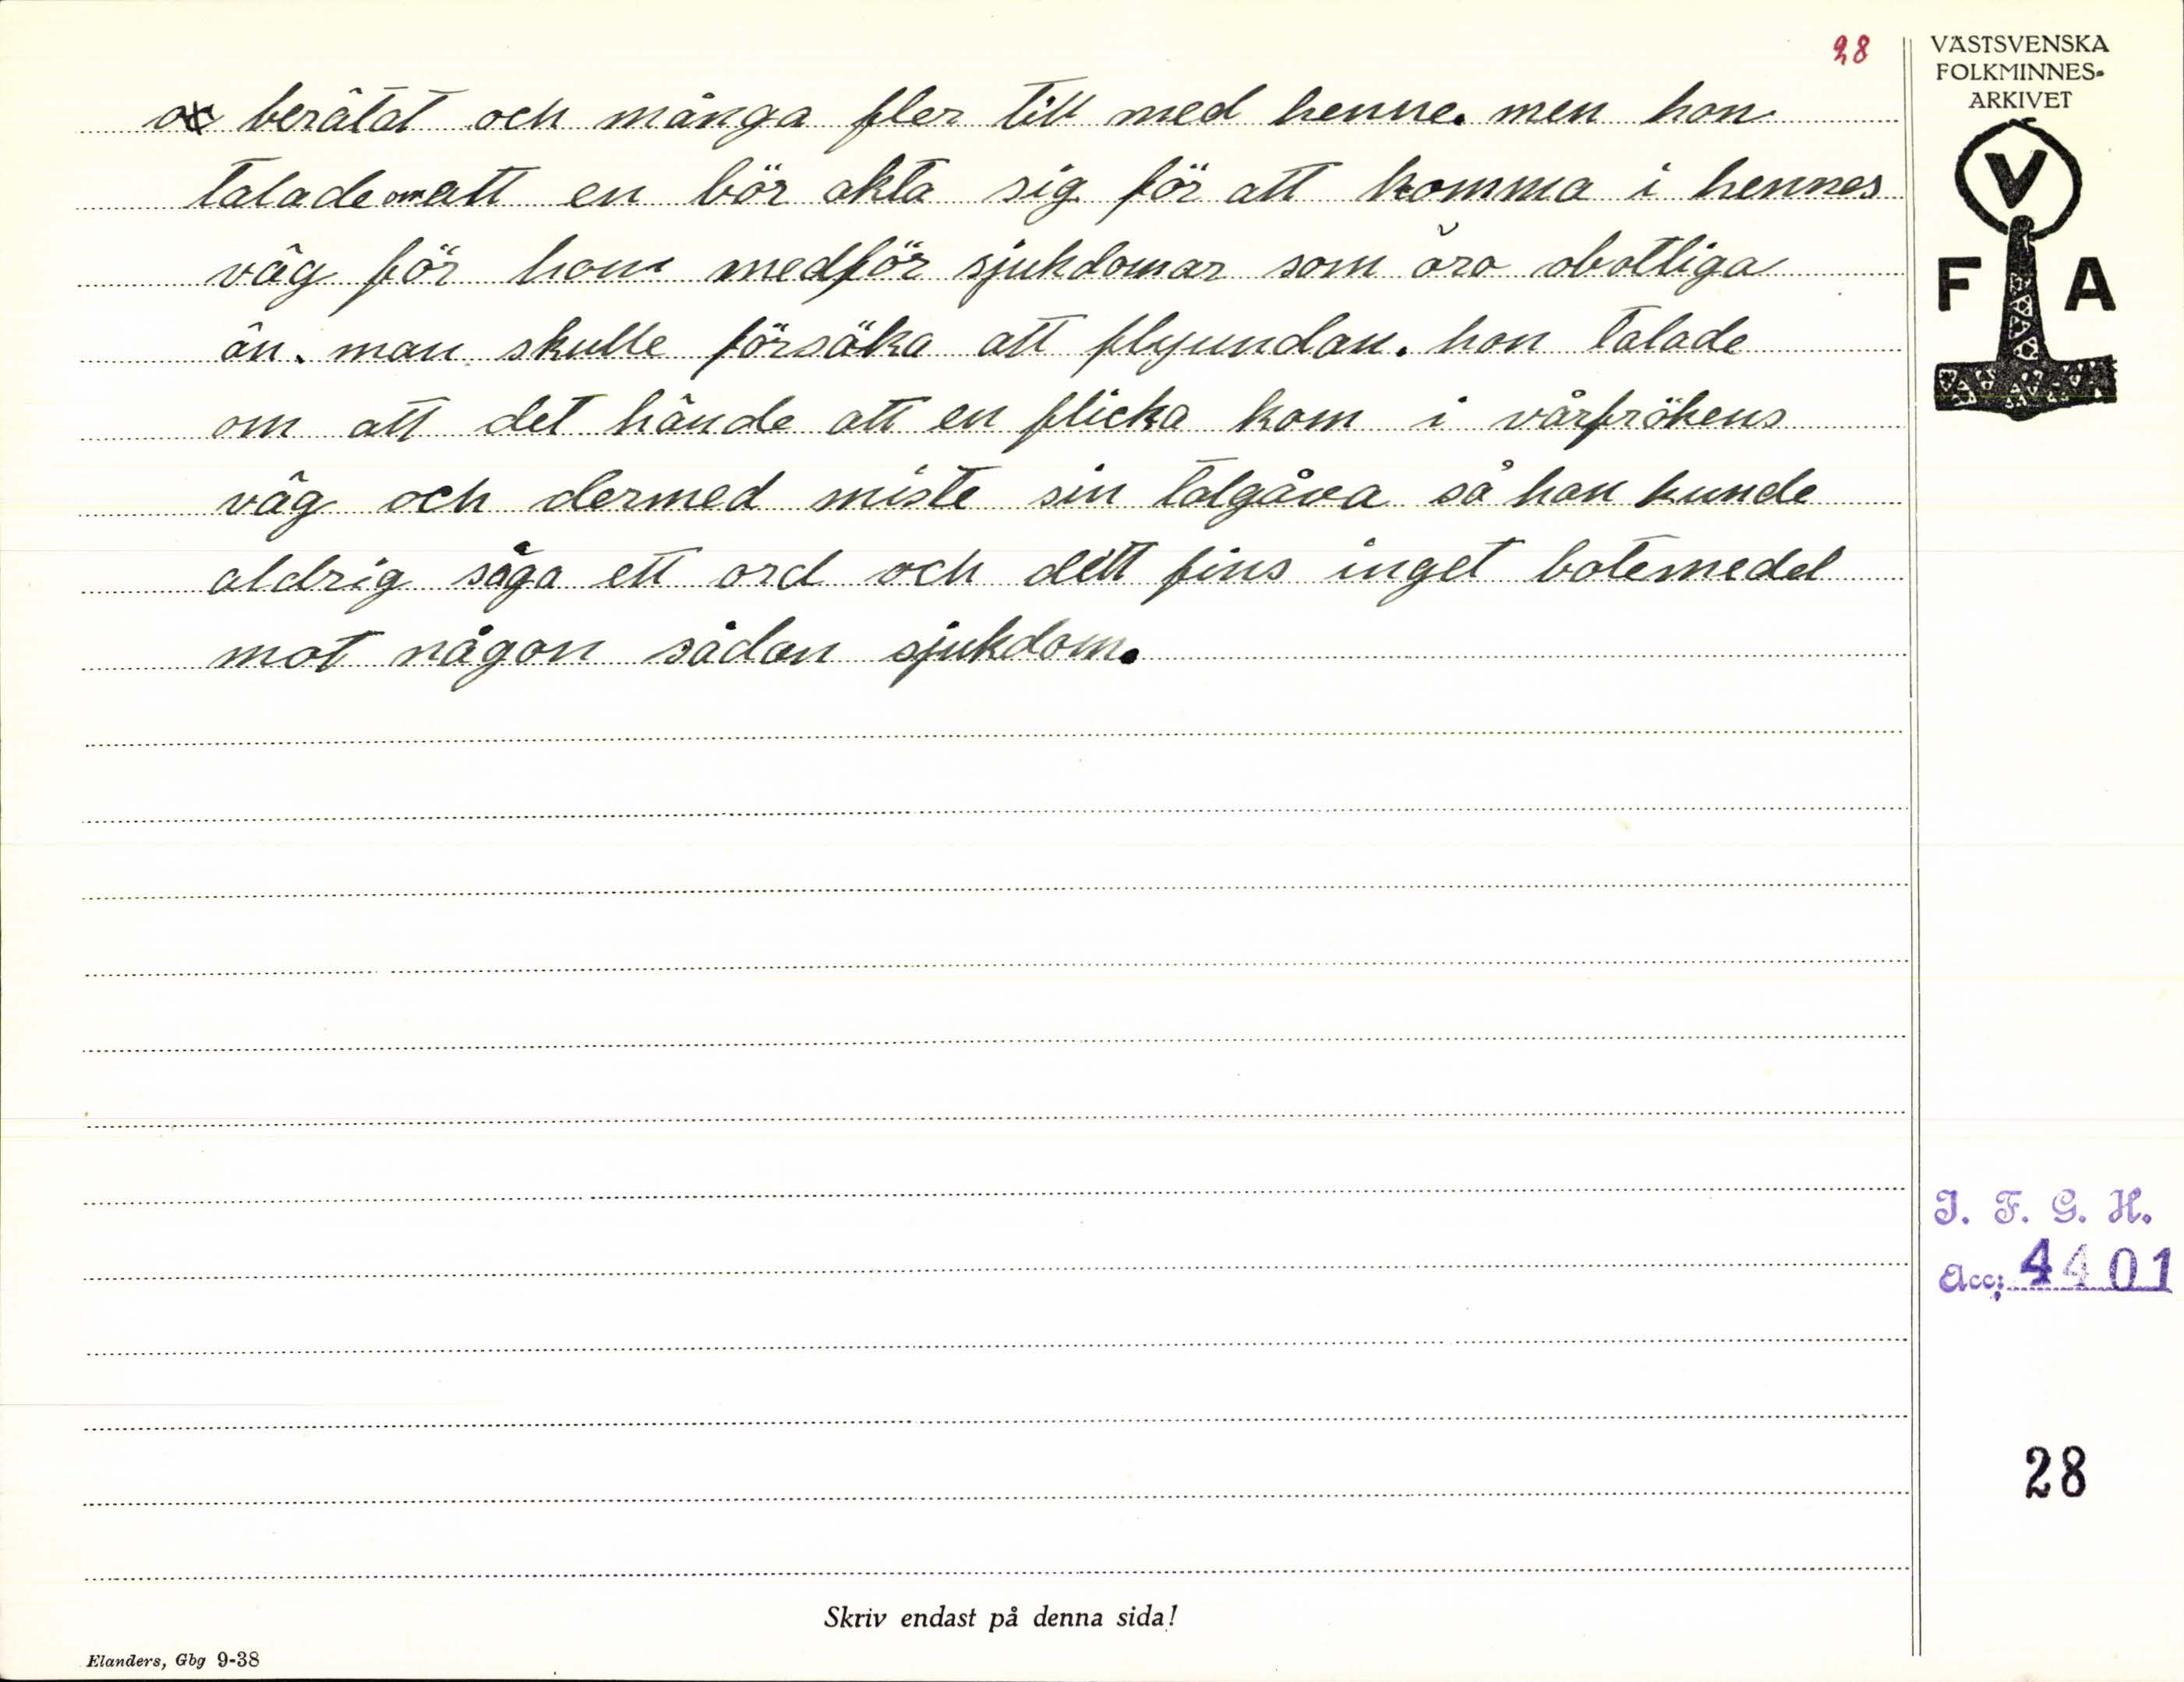 28
berätat och många fler till med henne. men hon
talade om att en bör akta sig för att komma i hennes
väg för hon medför sjukdomar som äro obotliga
än. man skulle försöka att fly undan. hon talade
om att det hände att en flicka kom i vårfrökens
väg och dermed miste sin talgåva så hon kunde
aldrig säga ett ord och dett fins inget botemedel
mot någon sådan sjukdom.
Skriv endast på denna sida!
Elanders, Gbg 9-38
VÄSTSVENSKA
FOLKMINNES-
ARKIVET
V
F A
I. F. G. H.
Acc; 4401
28